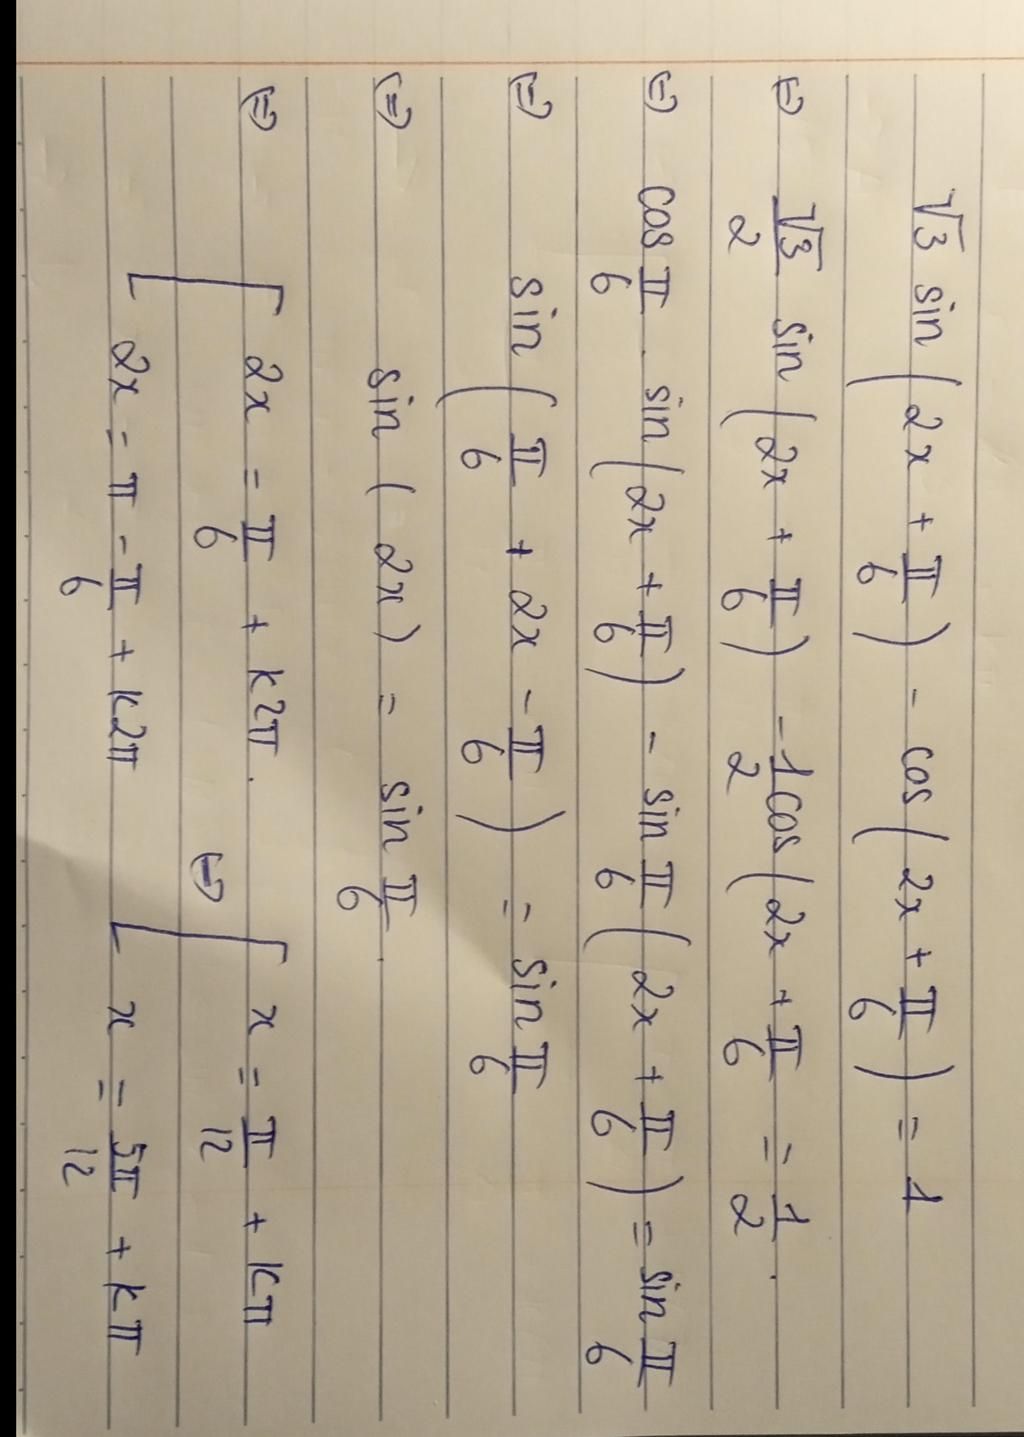 √3 sin(2x + π/6) - cos(2x + π/6) = 1
(=) √3/2 sin(2x + π/6) - 1/2 cos(2x + π/6 = 1/2.
(=) cos π/6 . sin(2x + π/6) - sin π/6 (2x + π/6) = sin π/6
(=) sin(π/6 + 2x - π/6) = sin π/6
(=) sin(2x) = sin π/6.
(=) [ 2x = π/6 + k2π. (=) [ x = π/12 + kπ
2x = π - π/6 + k2π x = 5π/12 + kπ